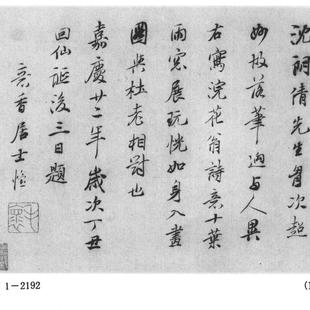 沈硎倩先生胃次超
妙故落筆迥与人異
右寫浣花翁詩意十葉
雨窓展玩恍如身入畫
圖與杜老相對也
嘉慶廿二年歲次丁丑
回仙誕後三日題
意香居士
1-2192
(1